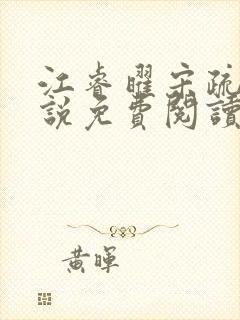 江睿曜宋疏
說免費閱讀
黃暉